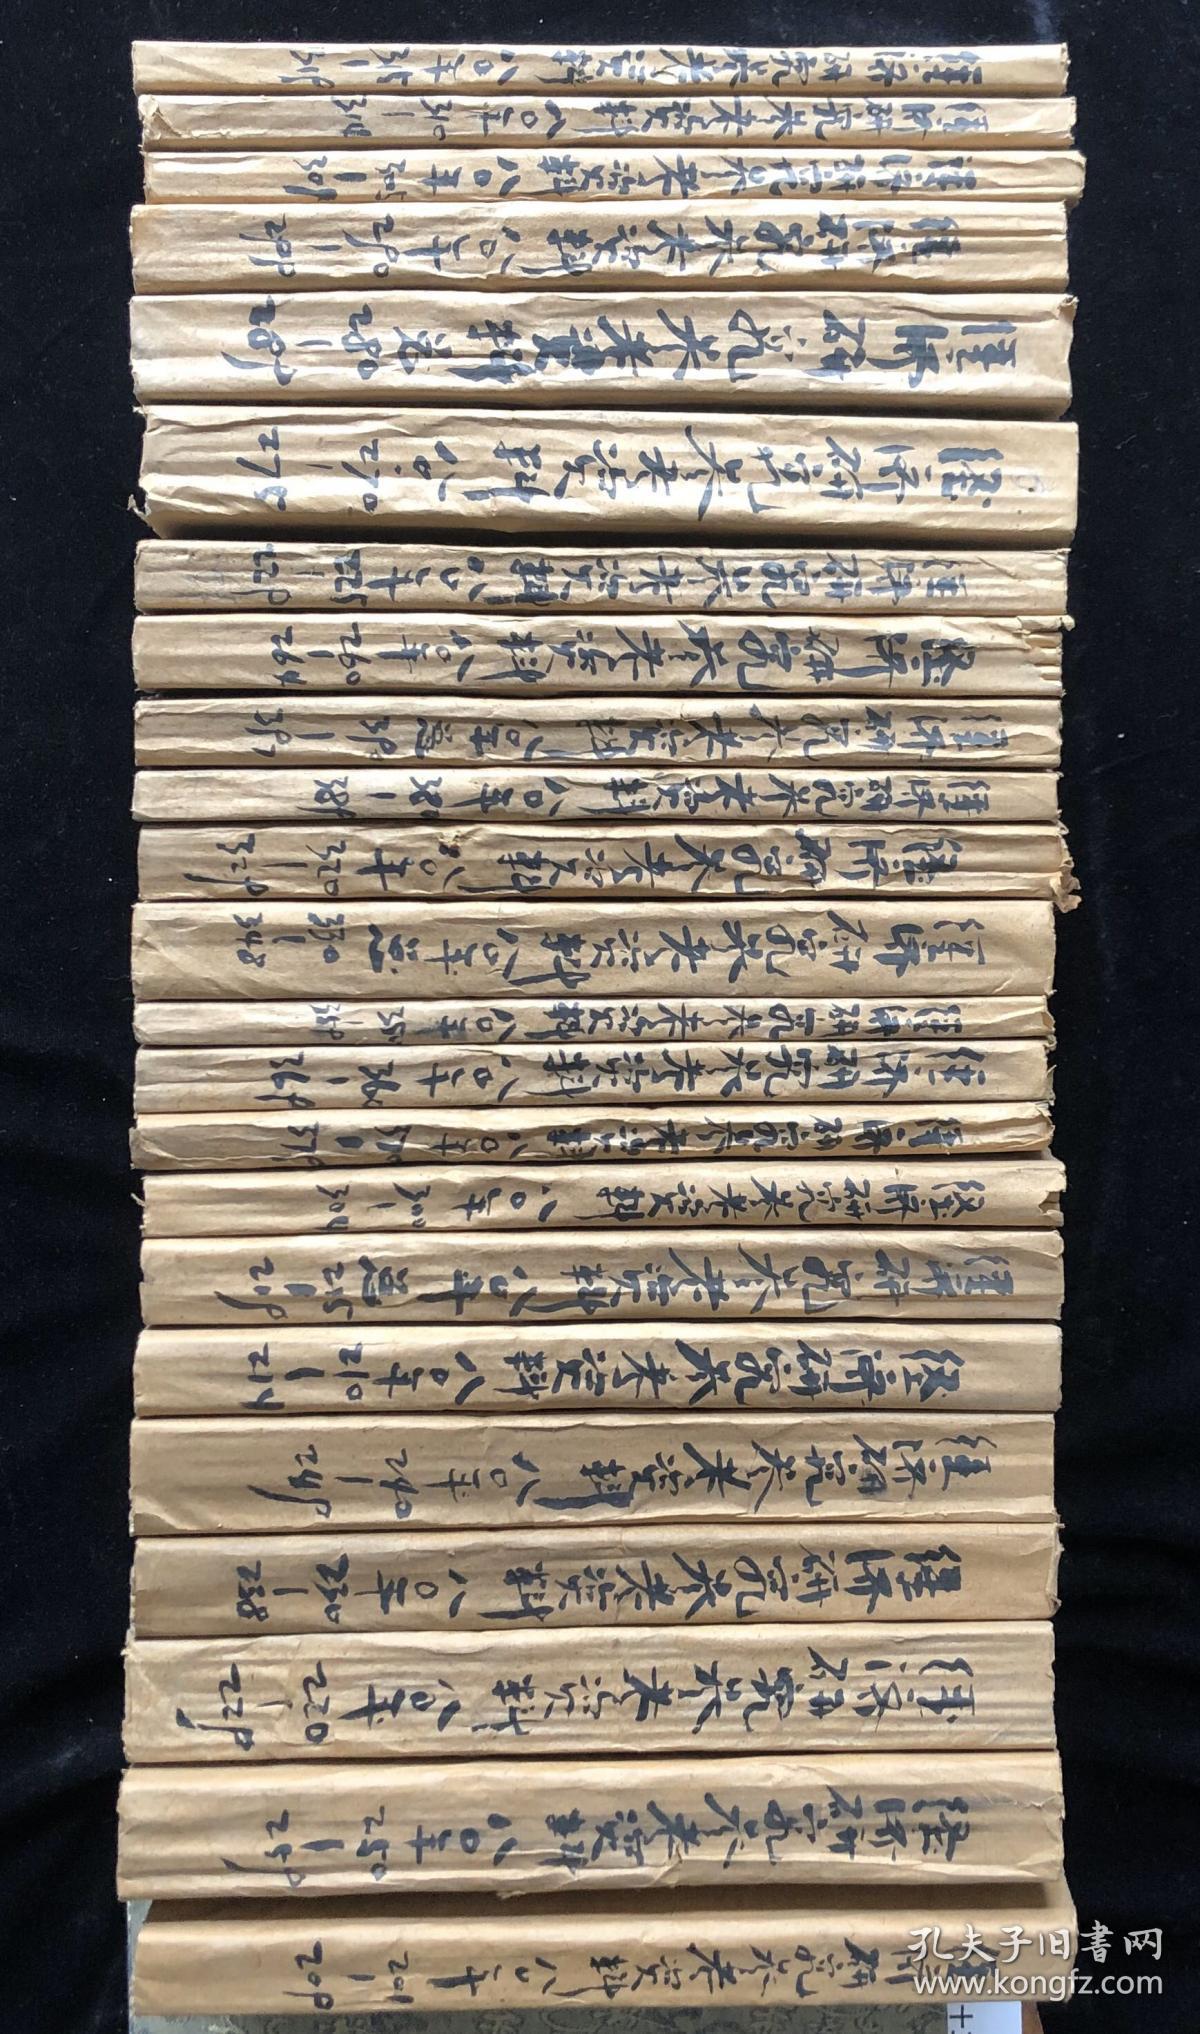 经济研究参考资料 八〇年 315—319
经济研究参考资料 八〇年 310—314
经济研究参考资料 八〇年 305—309
经济研究参考资料 八〇年 290—299
经济研究参考资料 280—289
经济研究参考资料 八〇 270—278
经济研究参考资料 八〇年
经济研究参考资料 八〇年 260—264
经济研究参考资料 八〇年
经济研究参考资料 八〇年 380—389
经济研究参考资料 八〇年 320—329
经济研究参考资料 八〇年 330—348
经济研究参考资料 八〇年
经济研究参考资料 八〇年 360—369
经济研究参考资料 八〇年
经济研究参考资料 八〇年 300—304
经济研究参考资料 八〇年 215—219
经济研究参考资料 八〇年 210—214
经济研究参考资料 八〇年 240—249
经济研究参考资料 八〇年 230—238
经济研究参考资料 八〇年 220—229
经济研究参考资料 八〇年 250—259
经济研究参考资料 八〇年 201—209
孔夫子旧书网
www.kongfz.com